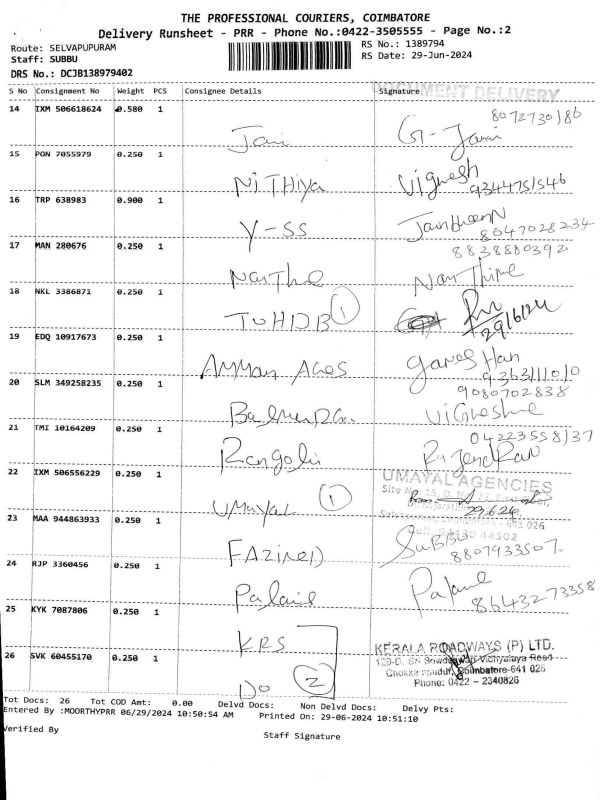 THE PROFESSIONAL COURIERS, COIMBATORE
Delivery Runsheet - PRR - Phone No.:0422-3505555 - Page No.:2
Route: SELVAPUPURAM
RS No.: 1389794
Staff: SUBBU
RS Date: 29-Jun-2024
DRS No.: DCJB138979402
S No Consignment No Weight PCS Consignee Details Signature
DOCUMENT DELIVERY
14 IXM 506618624 0.580 1
Jai G-Jami 8072730186
15 PON 7055979 0.250 1
NiTHiya Vignesh 9344751546
16 TRP 638983 0.900 1
Y-SS 8047028234
17 MAN 280676 0.250 1
8838880392
18 NKL 3386871 0.250 1
TOHDB 1 29/6/24
19 EDQ 10917673 0.250 1
AMMAN AGES 9363111010
20 SLM 349258235 0.250 1
9080702838
21 TMI 10164209 0.250 1
Rangoli 04223558137
RajendRan
22 IXM 506556229 0.250 1
UMAYAL 1 UMAYAL AGENCIES
29.6.24
641 026
23 MAA 944863933 0.250 1
SUBBU
8807933507
24 RJP 3360456 0.250 1
Palani Palani
8643273358
25 KYK 7087806 0.250 1
KRS
KERALA ROADWAYS (P) LTD.
26 SVK 60455170 0.250 1
Do 2
Coimbatore-641 026
Phone: 0422 - 2340826
Tot Docs: 26 Tot COD Amt: 0.00 Delvd Docs: Non Delvd Docs: Delvy Pts:
Entered By :MOORTHYPRR 06/29/2024 10:50:54 AM Printed On: 29-06-2024 10:51:10
Verified By
Staff Signature